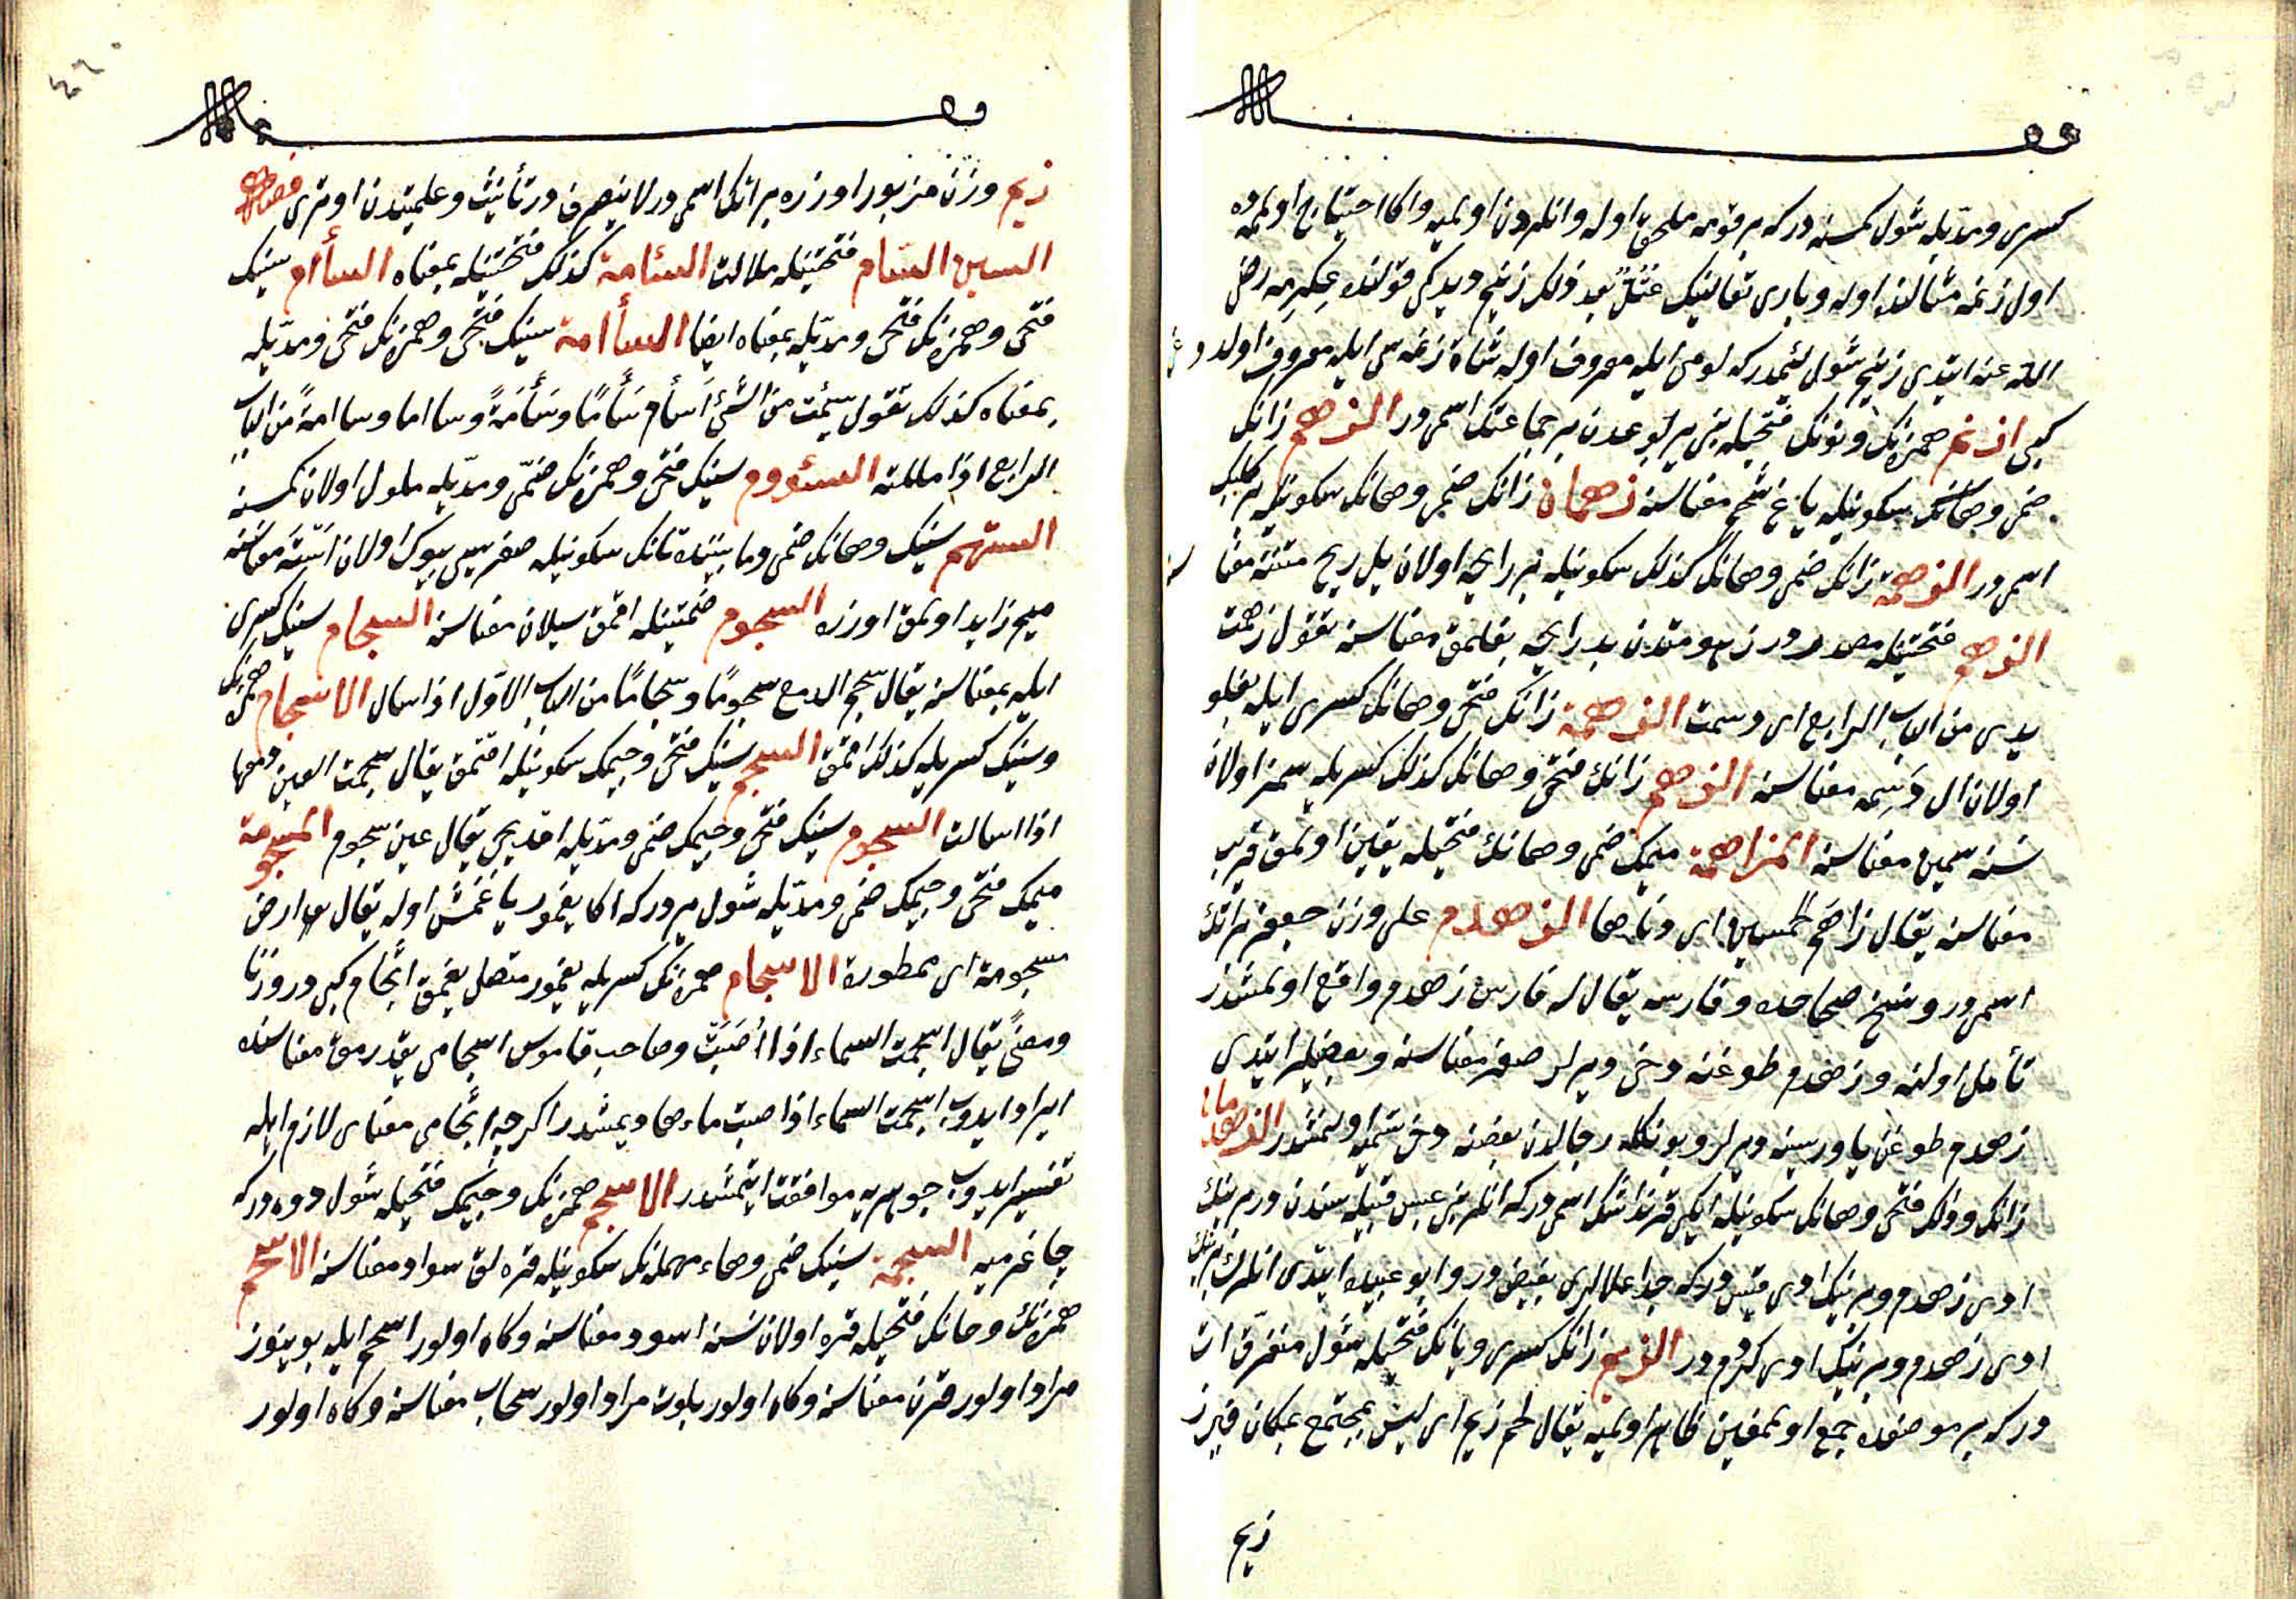 كسرى ومدّيله شول كمسنه دركه بر قومه ملحق اوله وانلردن اولميه واكا احتياج اولميه ده
اول زنمه مثالنده اوله وبارى تعالينك عتلٍّ بعد ذلك زنيم ديدكى قولنده عكرمه رضى
الله عنه ايتدى زنيم شول لئيمدركه لومى ايله معروف اوله شاة زنمه سى ايله معروف اولدوغى
كبى ازنم همزه نك ونونك فتحيله بنى يربوعدن بر جماعتك اسمى در الزهم زانك
ضمى وهانك سكونيله ياغ شحم معناسنه زهمان زانك ضمى وهانك سكونيله بر كلبك
اسمى در الزهمة زانك ضمى وهانك كذلك سكونيله بد رايحه اولان يل ريح منتنه معناسنه
الزهم فتحتيله مصدر در زهومتدن بد رايحه بغلمق معناسنه تقول زهمت
يدى من الباب الرابع اى دسمت الزهمة زانك فتحى وهانك كسرى ايله يغلو
اولان ال دَسِمه معناسنه الزهم زانك فتحى وهانك كذلك كسريله سمز اولان
نسنه سمين معناسنه المزاهمة ميمك ضمى وهانك فتحيله يقين اولمق قريب
معناسنه يقال زاهم الخمسين اى دناها الزهدم على وزن جعفر بر اتك
اسمى در ونسخ صحاحده وفارسه يقال له فارس زهدم واقع اولمشدر
تأمل اولنه وزهدم طوغنه دخى ديرلر صقر معناسنه وبعضيلر ايتدى
زهدم طوغن ياوريسنه ديرلر وبونكله رجالدن بعضنه دخى تسميه اولنمشدر الزهدمان
زانك ودالك فتحى وهانك سكونيله ايكى قرنداشك اسمى دركه انلر بنى عبس قبيله سندن در برينك
ادى زهدم وبرينك ادى قيس دركه جدا علالرى بغيض در وابو عبيده ايتدى انلرك برينك
ادى زهدم وبرينك ادى كردم در الزيم زانك كسرى ويانك فتحيله شول متفرق ات
دركه بر موضعده جمع اولمغين ظاهر اولميه يقال لحم زيم اى ليس بمجتمع بمكان فيبرز
زيم
زيم وزن مزبور اوزره بر اتك اسمى در لا ينصرف در تأنيث وعلميتدن اوترى فصل
السين السأم فتحتينله ملالت السئامة كذلك فتحتينله بمعناه السأام سينك
فتحى وهمزه نك فتحى ومدّيله بمعناه ايضا السأامة سينك فتحى وهمزه نك فتحى ومدّيله
بمعناه كذلك تقول سئمت من الشئ أسأم سَأْمًا وسَأْمَةً وسااما وساامةً من الباب
الرابع اذا مللته السئووم سينك فتحى وهمزه نك ضمّى ومدّيله ملول اولان كمسنه
الستهم سينك وهانك ضمى وما بيننده تانك سكونيله صغريسى بيوك اولان استه معناسنه
ميم زايد اولمق اوزره السجوم ضمتينله اقمق سيلان معناسنه السجام سينك كسرى
ايله بمعناسنه يقال سجم الدمع سجومًا وسجامًا من الباب الاوّل اذا سال الاسجام همزه نك
وسينك كسريله كذلك اقمق السجم سينك فتحى وجيمك سكونيله اقتمق يقال سجمت العين دمعها
اذا اسالت السجوم سينك فتحى وجيمك ضمى ومدّيله اقديجى يقال عين سجوم المسجومة
ميمك فتحى وجيمك ضمى ومدّيله شول يردركه اكا يغمور ياغمش اوله يقال ارض
مسجومة اى ممطورة الاسجام همزه نك كسريله يغمور متصل يغمق اثجام كبى در وزنا
ومعنًى يقال اسجمت السماء اذا اصبّت وصاحب قاموس اسجامى يقدرمق معناسنده
ايراد ايدوب اسجمت السماء اذا صبت ماءها ديمشدر اكرچه اثجامى معناى لازم ايله
تفسير ايدوب جوهرىيه موافقت ايتمشدر الاسجم همزه نك وجيمك فتحيله شول دوه دركه
چاغرميه السحمة سينك ضمى وحاء مهمله نك سكونيله قره لق سواد معناسنه الاسحم
همزه نك وحانك فتحيله قره اولان نسنه اسود معناسنه وكاه اولور اسحم ايله بوينوز
مراد اولور قرن معناسنه وكاه اولور بلوت مراد اولور سحاب معناسنه وكاه اولور